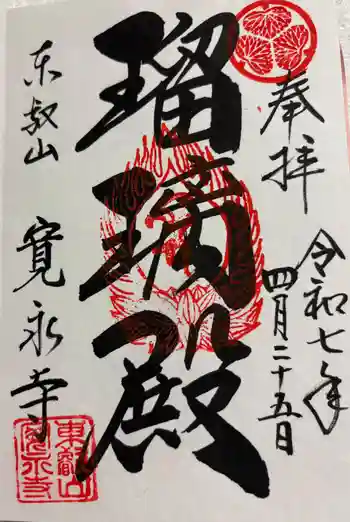 奉拝
令和七年
四月二十五日
瑠璃殿
東叡山
寛永寺
東叡山
寛永寺